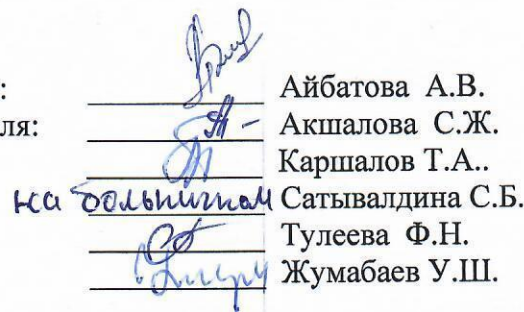 : Айбатова А.В.
ля: Акшалова С.Ж.
Каршалов Т.А..
на больничном Сатывалдина С.Б.
Тулеева Ф.Н.
Жумабаев У.Ш.